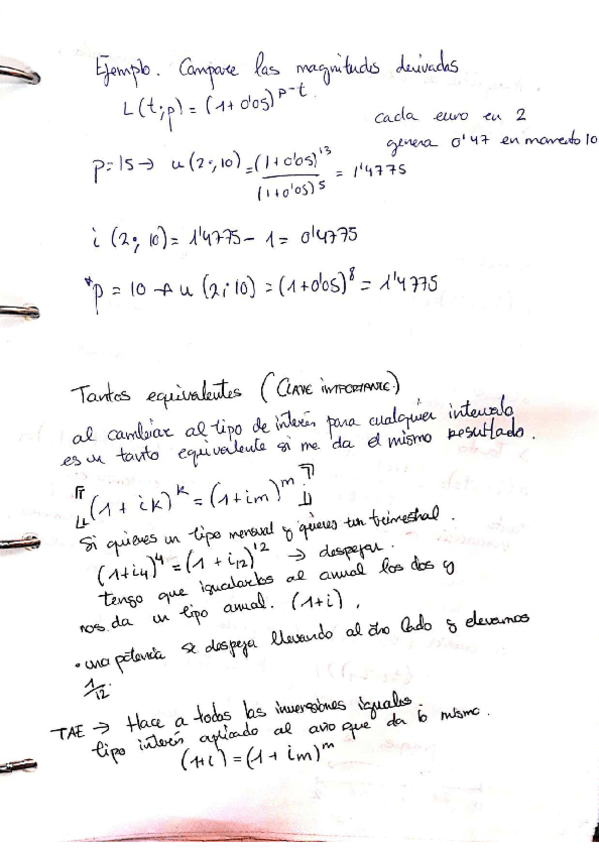 Ejemplo. Compare las magnitudes derivadas
L(t;p) = (1+0'05)^p-t
cada euro en 2
genera 0'47 en momento 10
p=15 → u(2;10) = (1+0'05)^13 / (1+0'05)^5 = 1'4775
i (2; 10) = 1'4775 - 1 = 0'4775
*p = 10 → u (2; 10) = (1+0'05)^8 = 1'4775
Tantos equivalentes (CLAVE IMPORTANTE.)
al cambiar al tipo de interés para cualquier intervalo
es un tanto equivalente si me da el mismo resultado.
(1 + ik)^k = (1+im)^m
Si quieres un tipo mensual y quieres un trimestral.
(1+i4)^4 = (1 + i12)^12 → despejar.
tengo que igualarlos al anual los dos y
nos da un tipo anual. (1+i),
• una potencia se despeja llevando al otro lado y elevamos
1/12.
TAE → Hace a todas las inversiones iguales.
tipo interés aplicado al año que da lo mismo.
(1+i) = (1 + im)^m